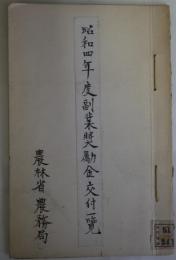 昭和四年度副業奨励金交付一覧
農林省農務局